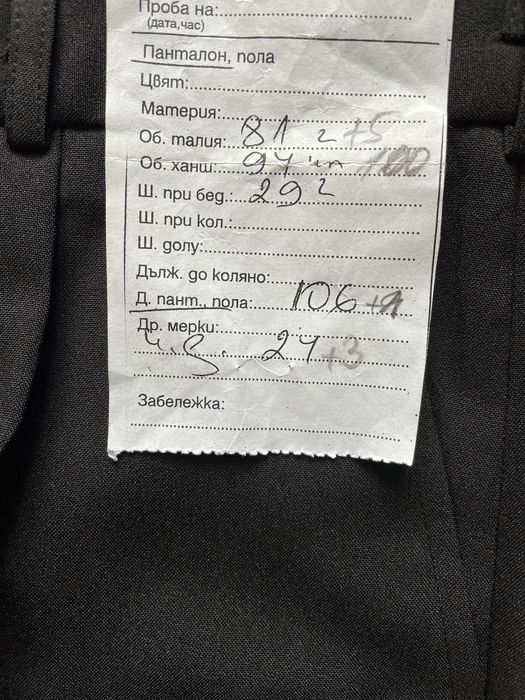 Проба на:
(дата,час)
Панталон, пола
Цвят:
Материя:
Об. талия: 81 г +5
Об. ханш: 97 100
Ш. при бед.: 29 2
Ш. при кол.:
Ш. долу:
Дълж. до коляно:
Д. пант., пола: 106 +1
Др. мерки:
ч.д. 27 +3
Забележка: